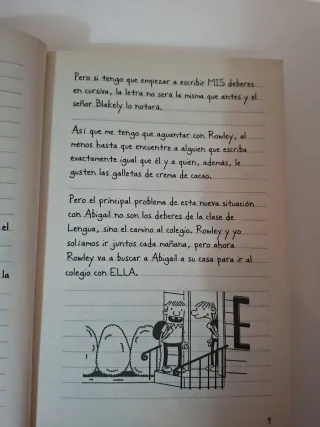 Pero si tengo que empezar a escribir MIS deberes
en cursiva, la letra no será la misma que antes y el
señor Blakely lo notará.
Así que me tengo que aguantar con Rowley, al
menos hasta que encuentre a alguien que escriba
exactamente igual que él y a quien, además, le
gusten las galletas de crema de cacao.
Pero el principal problema de esta nueva situación
con Abigail no son los deberes de la clase de
Lengua, sino el camino al colegio. Rowley y yo
solíamos ir juntos cada mañana, pero ahora
Rowley va a buscar a Abigail a su casa para ir al
colegio con ELLA.
el
la
9